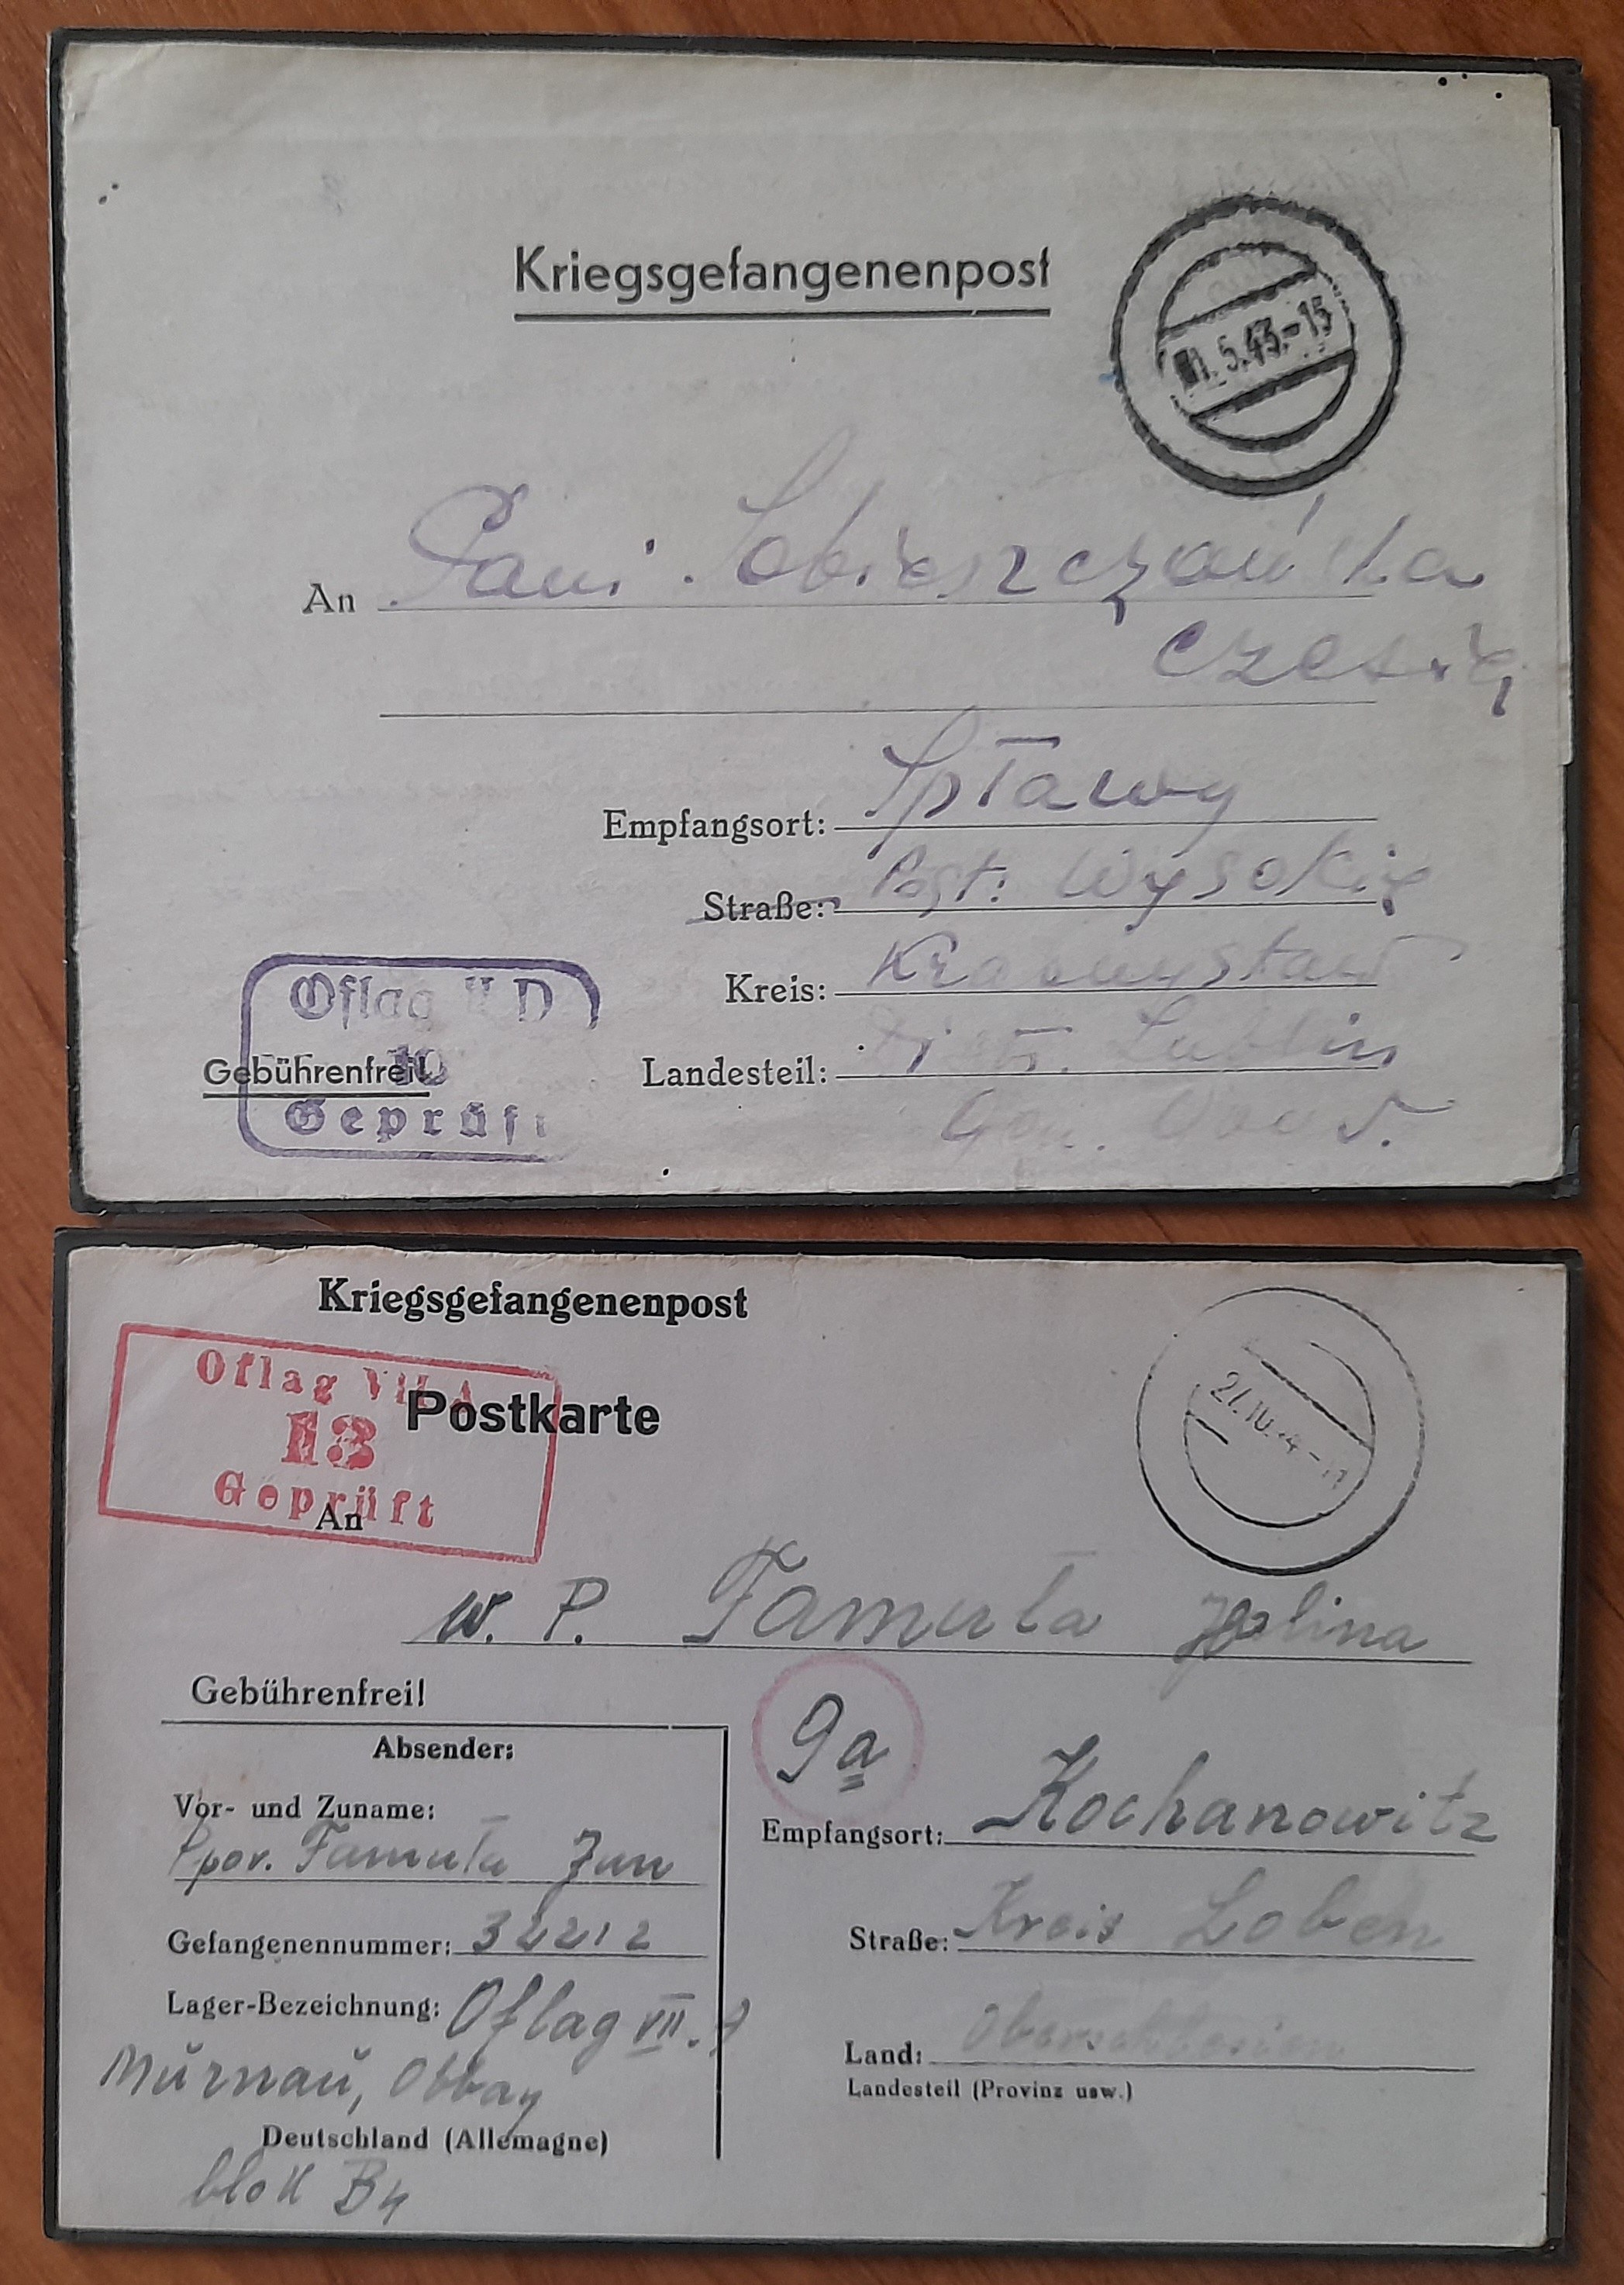 Kriegsgefangenenpost
1. 5. 43.-15
An Pani Sobieszczańska
Czesia
Empfangsort: Spławy
Straße: Post: Wysokie
Kreis: Krasnystaw
Oflag II D
10
Geprüft
Gebührenfrei!
Landesteil: Distr. Lublin
Gen. Gouv.
Kriegsgefangenenpost
Oflag VII A
13
Geprüft
Postkarte
An
W. P. Famuła Halina
Gebührenfrei!
9a
Absender:
Vor- und Zuname:
Ppor. Famuła Jan
Empfangsort: Kochanowitz
Gefangenennummer: 32212
Straße: Kreis Loben
Lager-Bezeichnung: Oflag VII. A
Murnau, Obbay
Land: Oberschlesien
Landesteil (Provinz usw.)
Deutschland (Allemagne)
blok